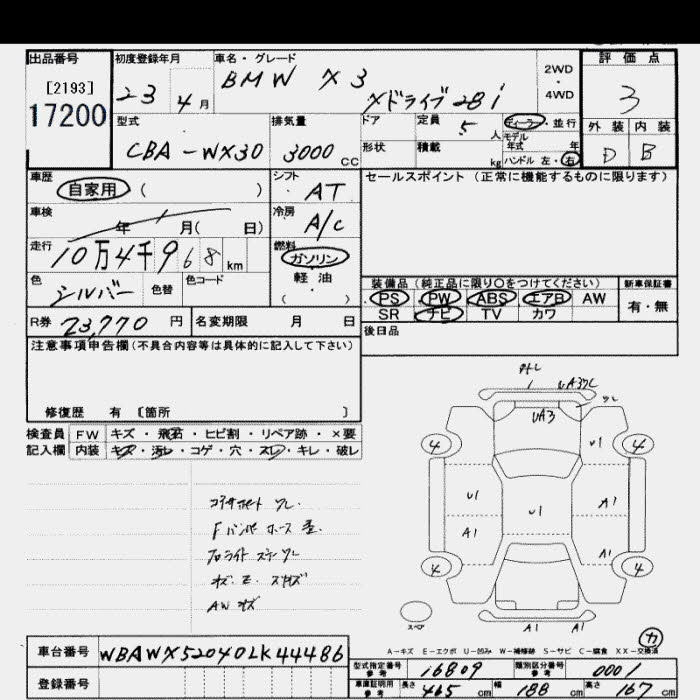 出品番号 初度登録年月 車名・グレード 評価点
[2193] 23年 4月 BMW X3 2WD・4WD 3
17200 Xドライブ28i
型式 排気量 ドア 定員 5人 ディーラー・並行 外装 内装
CBA-WX30 3000cc 形状 積載 kg モデル年式 年 ハンドル 左・右 D B
車歴 自家用 ( ) シフト AT セールスポイント (正常に機能するものに限ります)
車検 年 月( 日) 冷房 A/C
走行 10万4千968km 燃料 ガソリン
軽油
( )
色 シルバー 色替 色コード
装備品 (純正品に限り○をつけてください) 新車保証書
PS PW ABS エアB AW 有・無
SR ナビ TV カワ
R券 23,770円 名変期限 月 日 後日品
注意事項申告欄(不具合内容等は具体的に記入して下さい)
修復歴 有 [箇所 ]
検査員 FW キズ・飛石・ヒビ割・リペア跡・×要
記入欄 内装 キズ・汚レ・コゲ・穴・スレ・キレ・破レ
UA3
4 U1 4
U1 U1 A1
A1 A1
4 4
A1 A1
スペア
AW キズ
カ
A-キズ E-エクボ U-凹み W-補修跡 S-サビ C-腐食 XX-交換済
車台番号 WBAWX52040LK44486
登録番号
型式指定番号 参考 16809 類別区分番号 参考 0001
車庫証明用 参考 長さ 465cm 幅 188cm 高さ 167cm